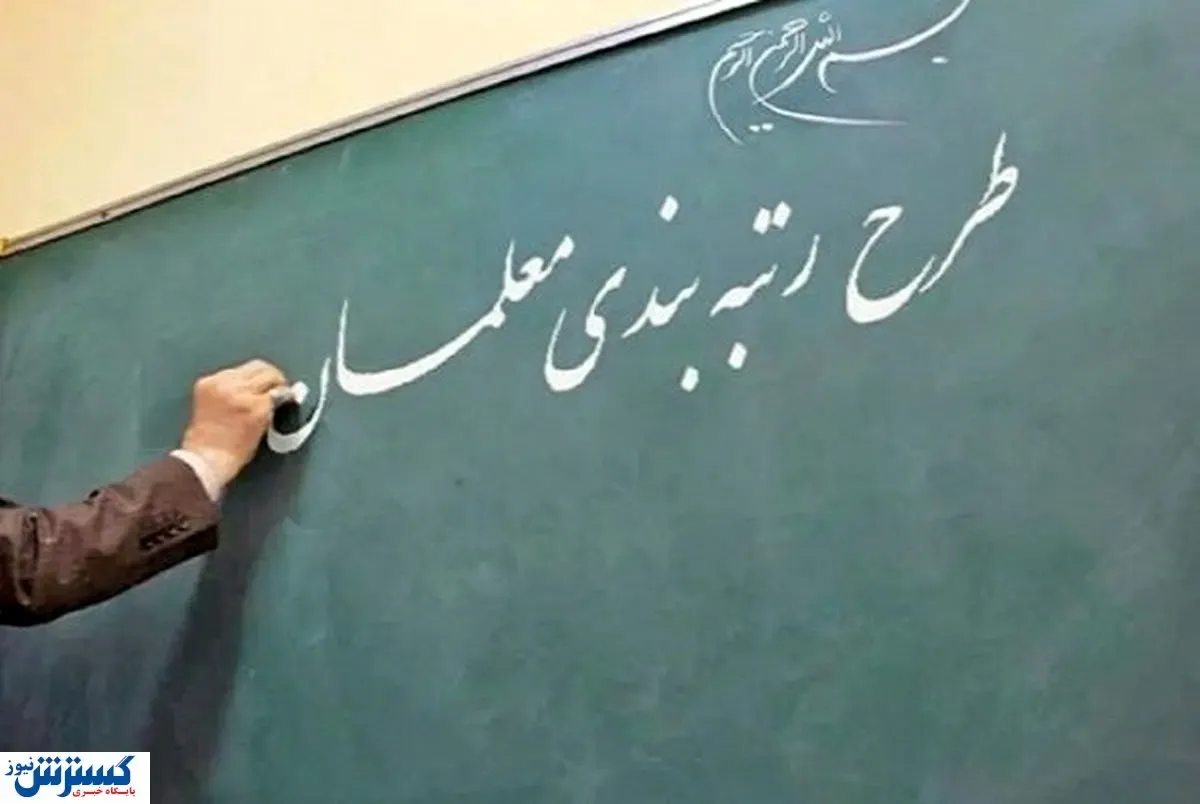 بسم الله الرحمن الرحیم
طرح رتبه بندی معلمان
گسترش نیوز
پایگاه خبری